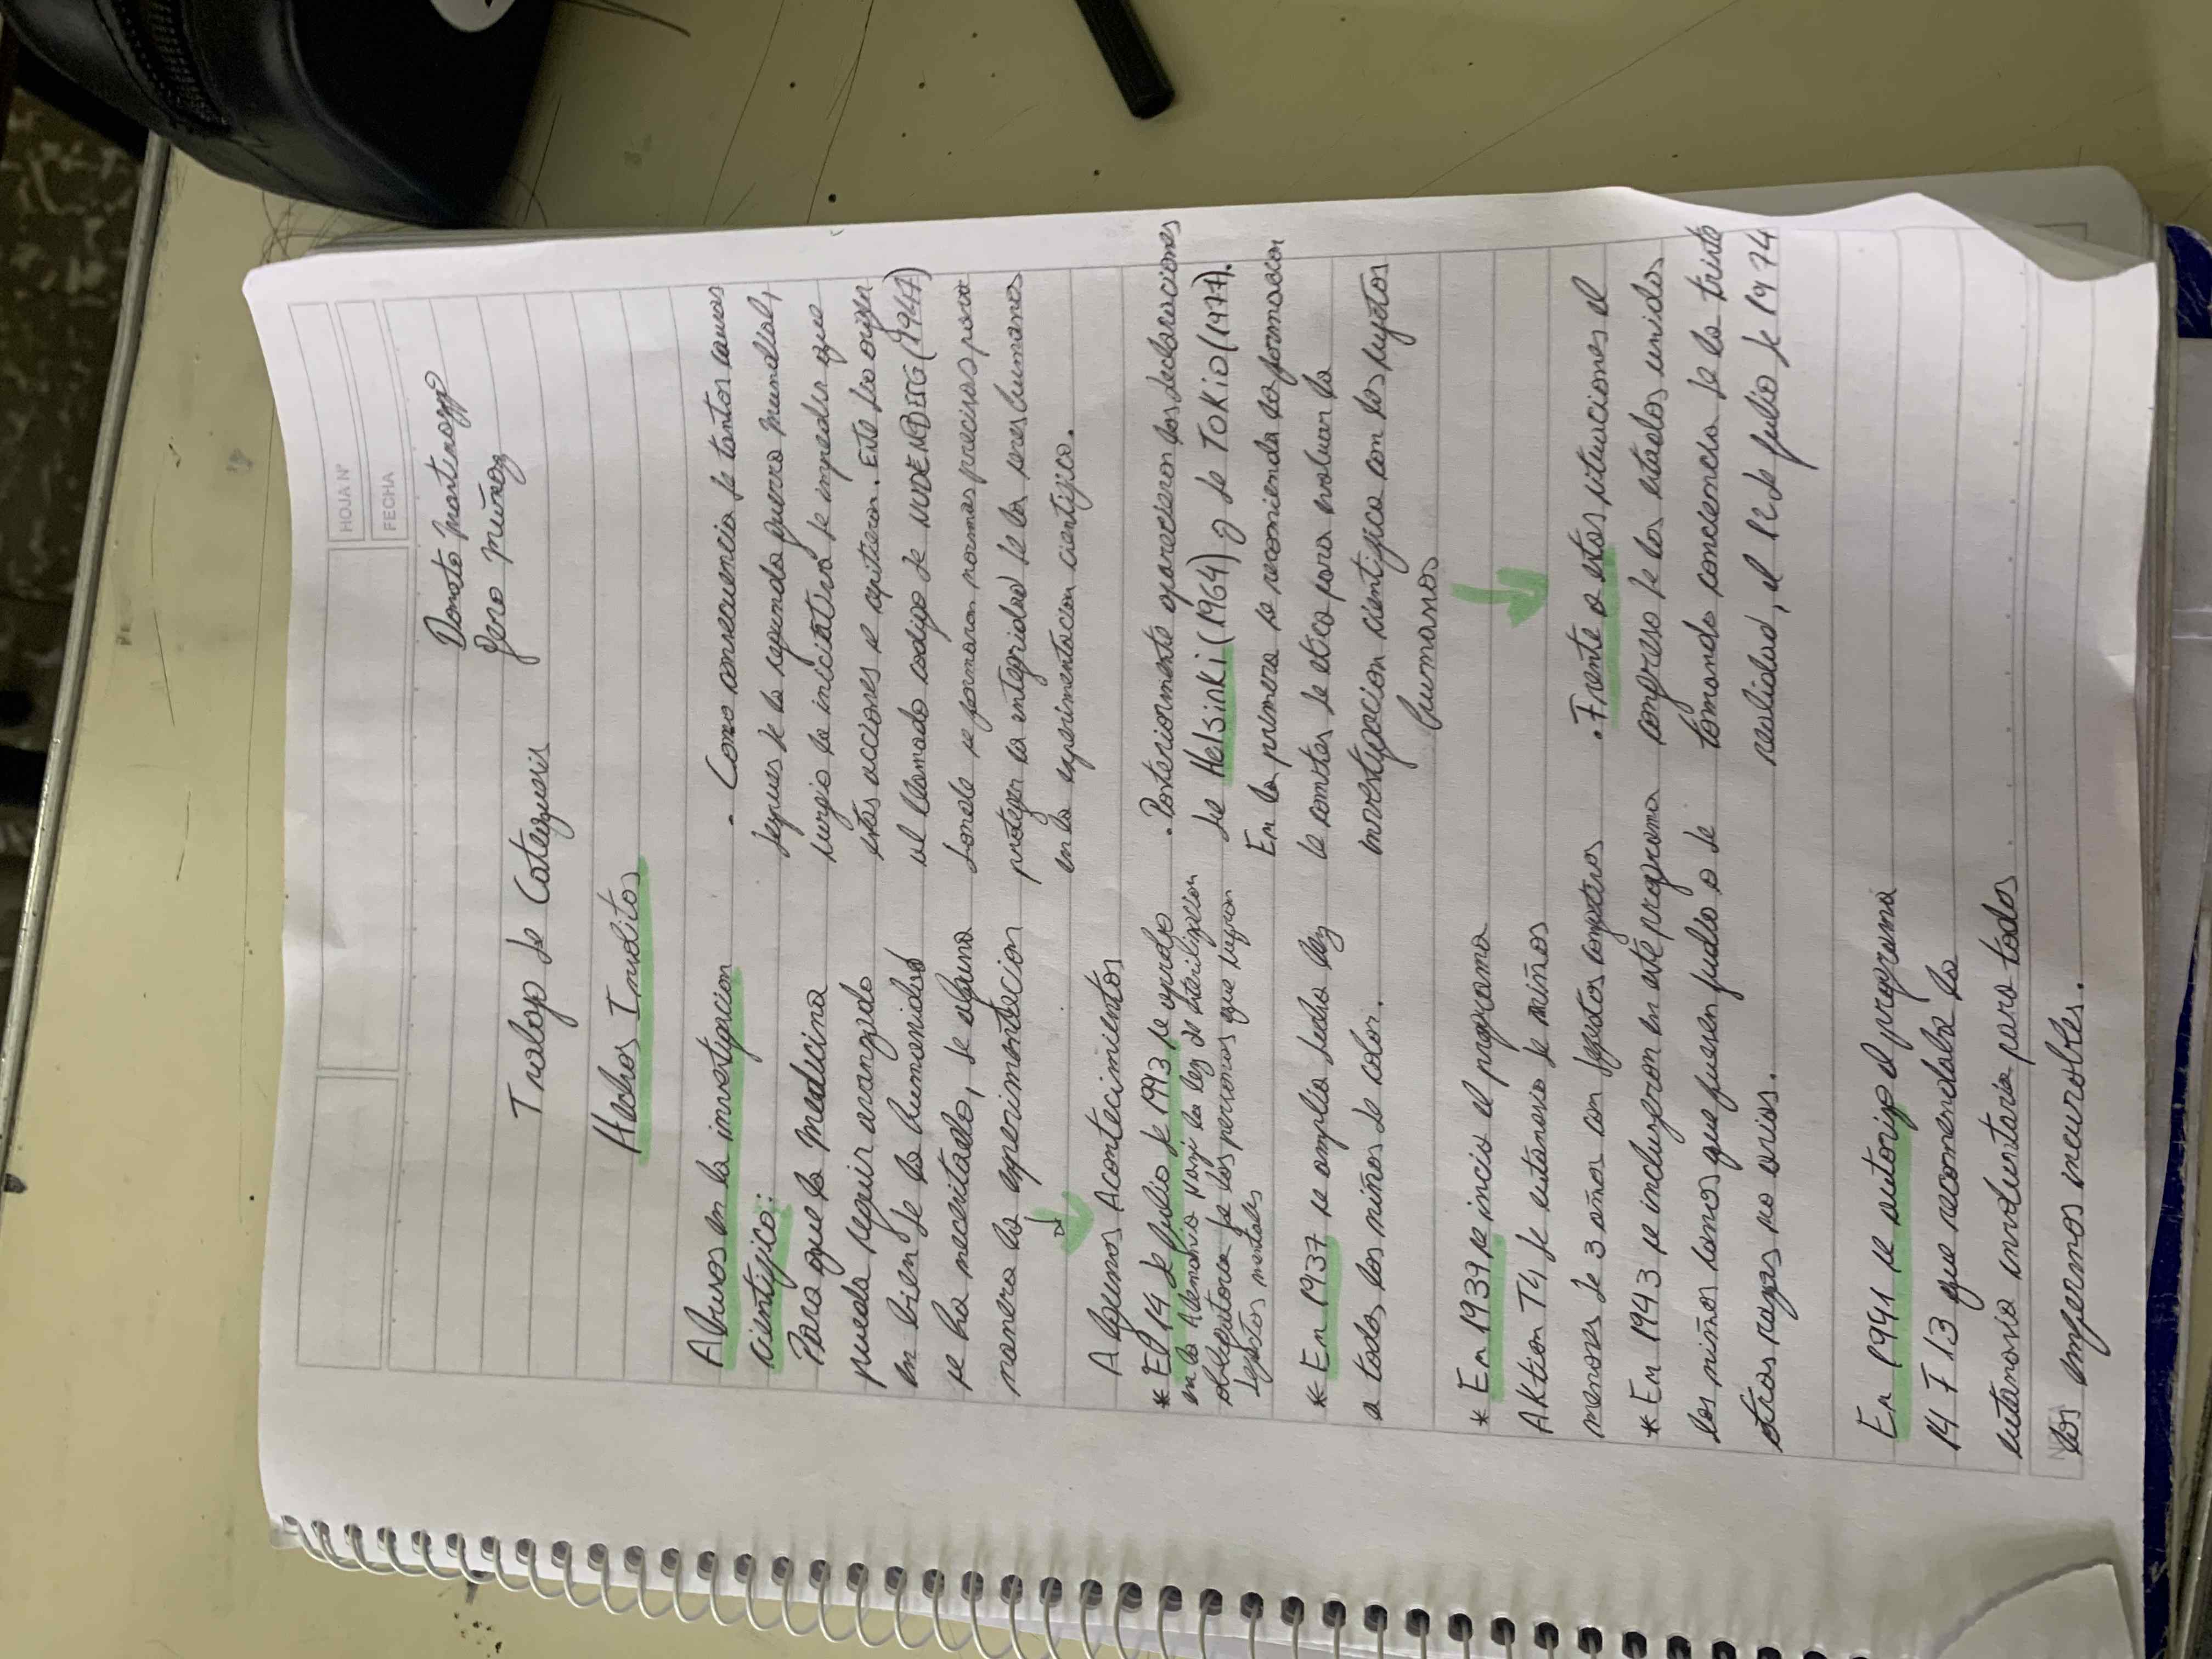 HOJA Nº
FECHA
Donato Martinazzo
Jero Muñoz
Trabajo de Catequesis
Hechos Inauditos
Abusos en la investigacion
cientifica:
Para que la Medicina
pueda seguir avanzado
en bien de la humanidad
se ha necesitado, de alguna
manera la experimentacion
Algunos Acontecimientos
* El 14 de Julio de 1993 se aprobo
en la Alemania Nazi la ley de esterilizacion
obligatoria de las personas que sufran
defectos mentales
* En 1937 se amplio dicha ley
a todos los niños de color.
* En 1939 se inicio el programa
AKtion T4 de eutanasia de niños
menores de 3 años con defectos congetios
* En 1943 se incluyeron en este programa
los niños sanos que fuesen judio o de
otras razas no arias.
En 1941 se autorizo el programa
14 F 13 que recomendaba la
eutanasia involuntaria para todos
los enfermos incurables.
. Como consecuencia de tantos causas
despues de la segunda guerra mundial,
surgio la iniciativa de impedir que
estas acciones se repitieran. Esto dio origen
al llamado codigo de NUREMBERG (1947)
donde se forman normas precisas para
proteger la integridad de los seres humanos
en la experimentacion cientifica.
. Posteriormente aparecieron las declaraciones
de Helsinki (1964) y de TOKIO (1977).
En la primera se recomienda la formacion
de comites de etica para evaluar la
investigacion cientifica con los sujetos
humanos
. Frente a estas situaciones el
congreso de los estados unidos
tomando conciencia de la triste
realidad, el 12 de julio de 1974